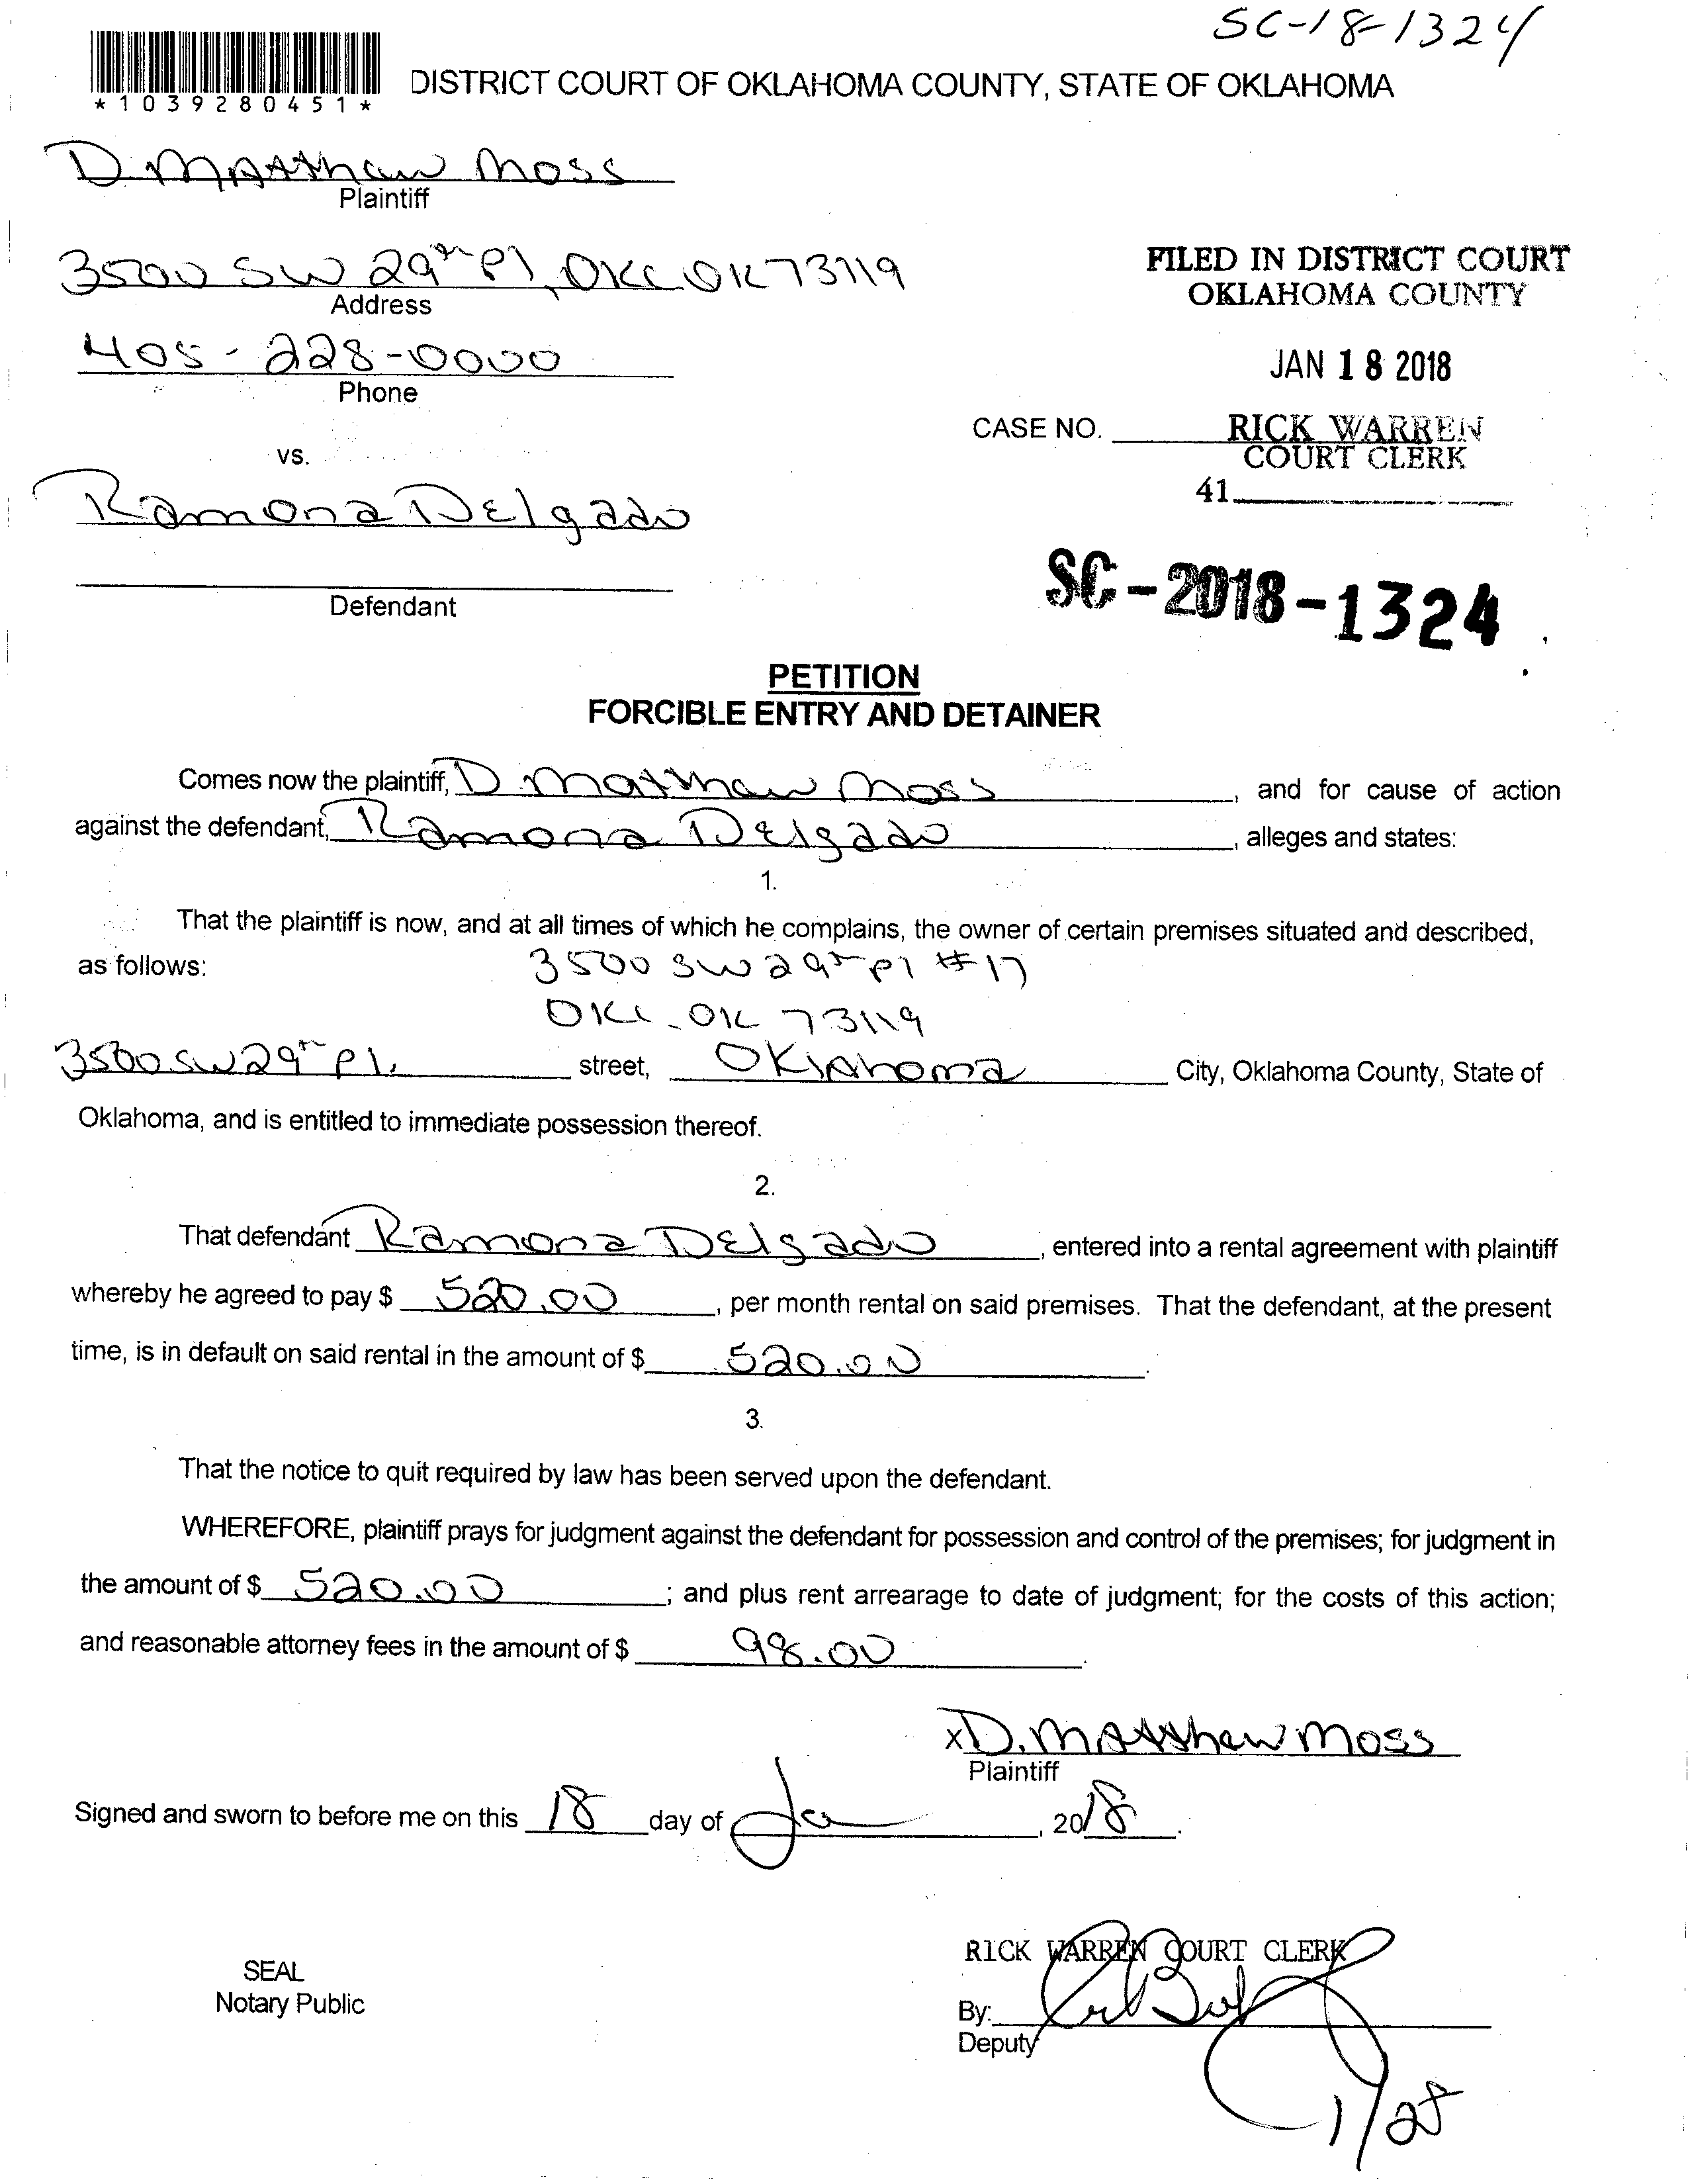 SC-18-1324
*1039280451*
DISTRICT COURT OF OKLAHOMA COUNTY, STATE OF OKLAHOMA
D. Matthew Moss
Plaintiff
3500 SW 29th Pl, OKC OK 73119
Address
FILED IN DISTRICT COURT
OKLAHOMA COUNTY
405-228-0000
Phone
JAN 18 2018
CASE NO.
RICK WARREN
COURT CLERK
vs.
41
Ramona Delgado
Defendant
SC-2018-1324
PETITION
FORCIBLE ENTRY AND DETAINER
Comes now the plaintiff, D. Matthew Moss, and for cause of action
against the defendant, Ramona Delgado, alleges and states:
1.
That the plaintiff is now, and at all times of which he complains, the owner of certain premises situated and described,
as follows: 3500 SW 29th Pl #17
OKC OK 73119
3500 SW 29th Pl. street, Oklahoma City, Oklahoma County, State of
Oklahoma, and is entitled to immediate possession thereof.
2.
That defendant Ramona Delgado, entered into a rental agreement with plaintiff
whereby he agreed to pay $ 520.00, per month rental on said premises. That the defendant, at the present
time, is in default on said rental in the amount of $ 520.00.
3.
That the notice to quit required by law has been served upon the defendant.
WHEREFORE, plaintiff prays for judgment against the defendant for possession and control of the premises; for judgment in
the amount of $ 520.00; and plus rent arrearage to date of judgment; for the costs of this action;
and reasonable attorney fees in the amount of $ 98.00.
x D. Matthew Moss
Plaintiff
Signed and sworn to before me on this 18 day of Ja, 2018.
RICK WARREN COURT CLERK
SEAL
Notary Public
By:
Deputy
1/25